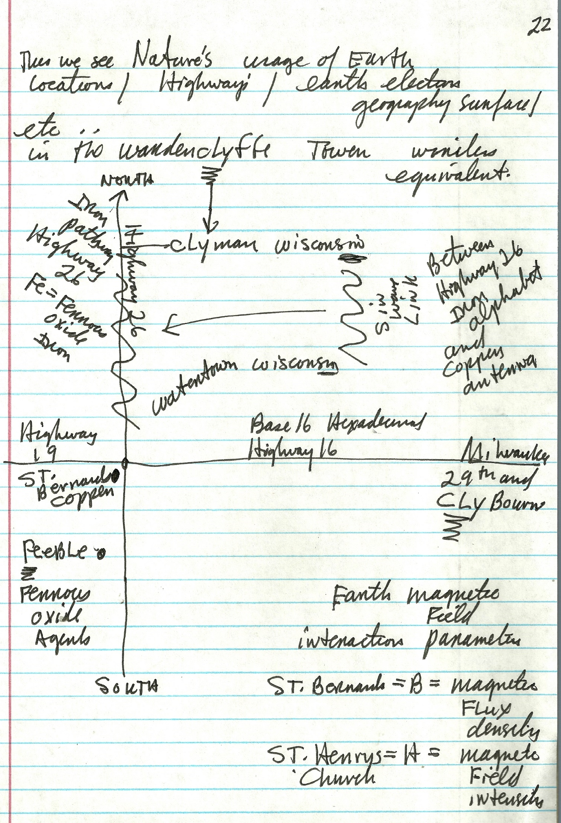 22
Thus we see Nature's usage of Earth
locations / Highways / earth electron
geography surface /
etc ..
in the wardenclyffe Tower wireless
equivalent.
NORTH
Iron
pathway
Highway
26
Fe = Ferrous
oxide
Iron
Highway 26
clyman wisconsin
Sin
wave
Link
Between
Highway 26
Iron
alphabet
and
Copper
antenna
watertown wisconsin
Base 16 Hexadecimal
Highway 16
Highway
19
ST. Bernards
Copper
Milwaukee
29th and
CLyBourn
FeeBLe
Ferrous
oxide
Agents
SOUTH
Earth magnetic
Field
interaction parameters
ST. Bernards = B = magnetic
Flux
density
ST. Henrys = H = magnetic
Church Field
intensity